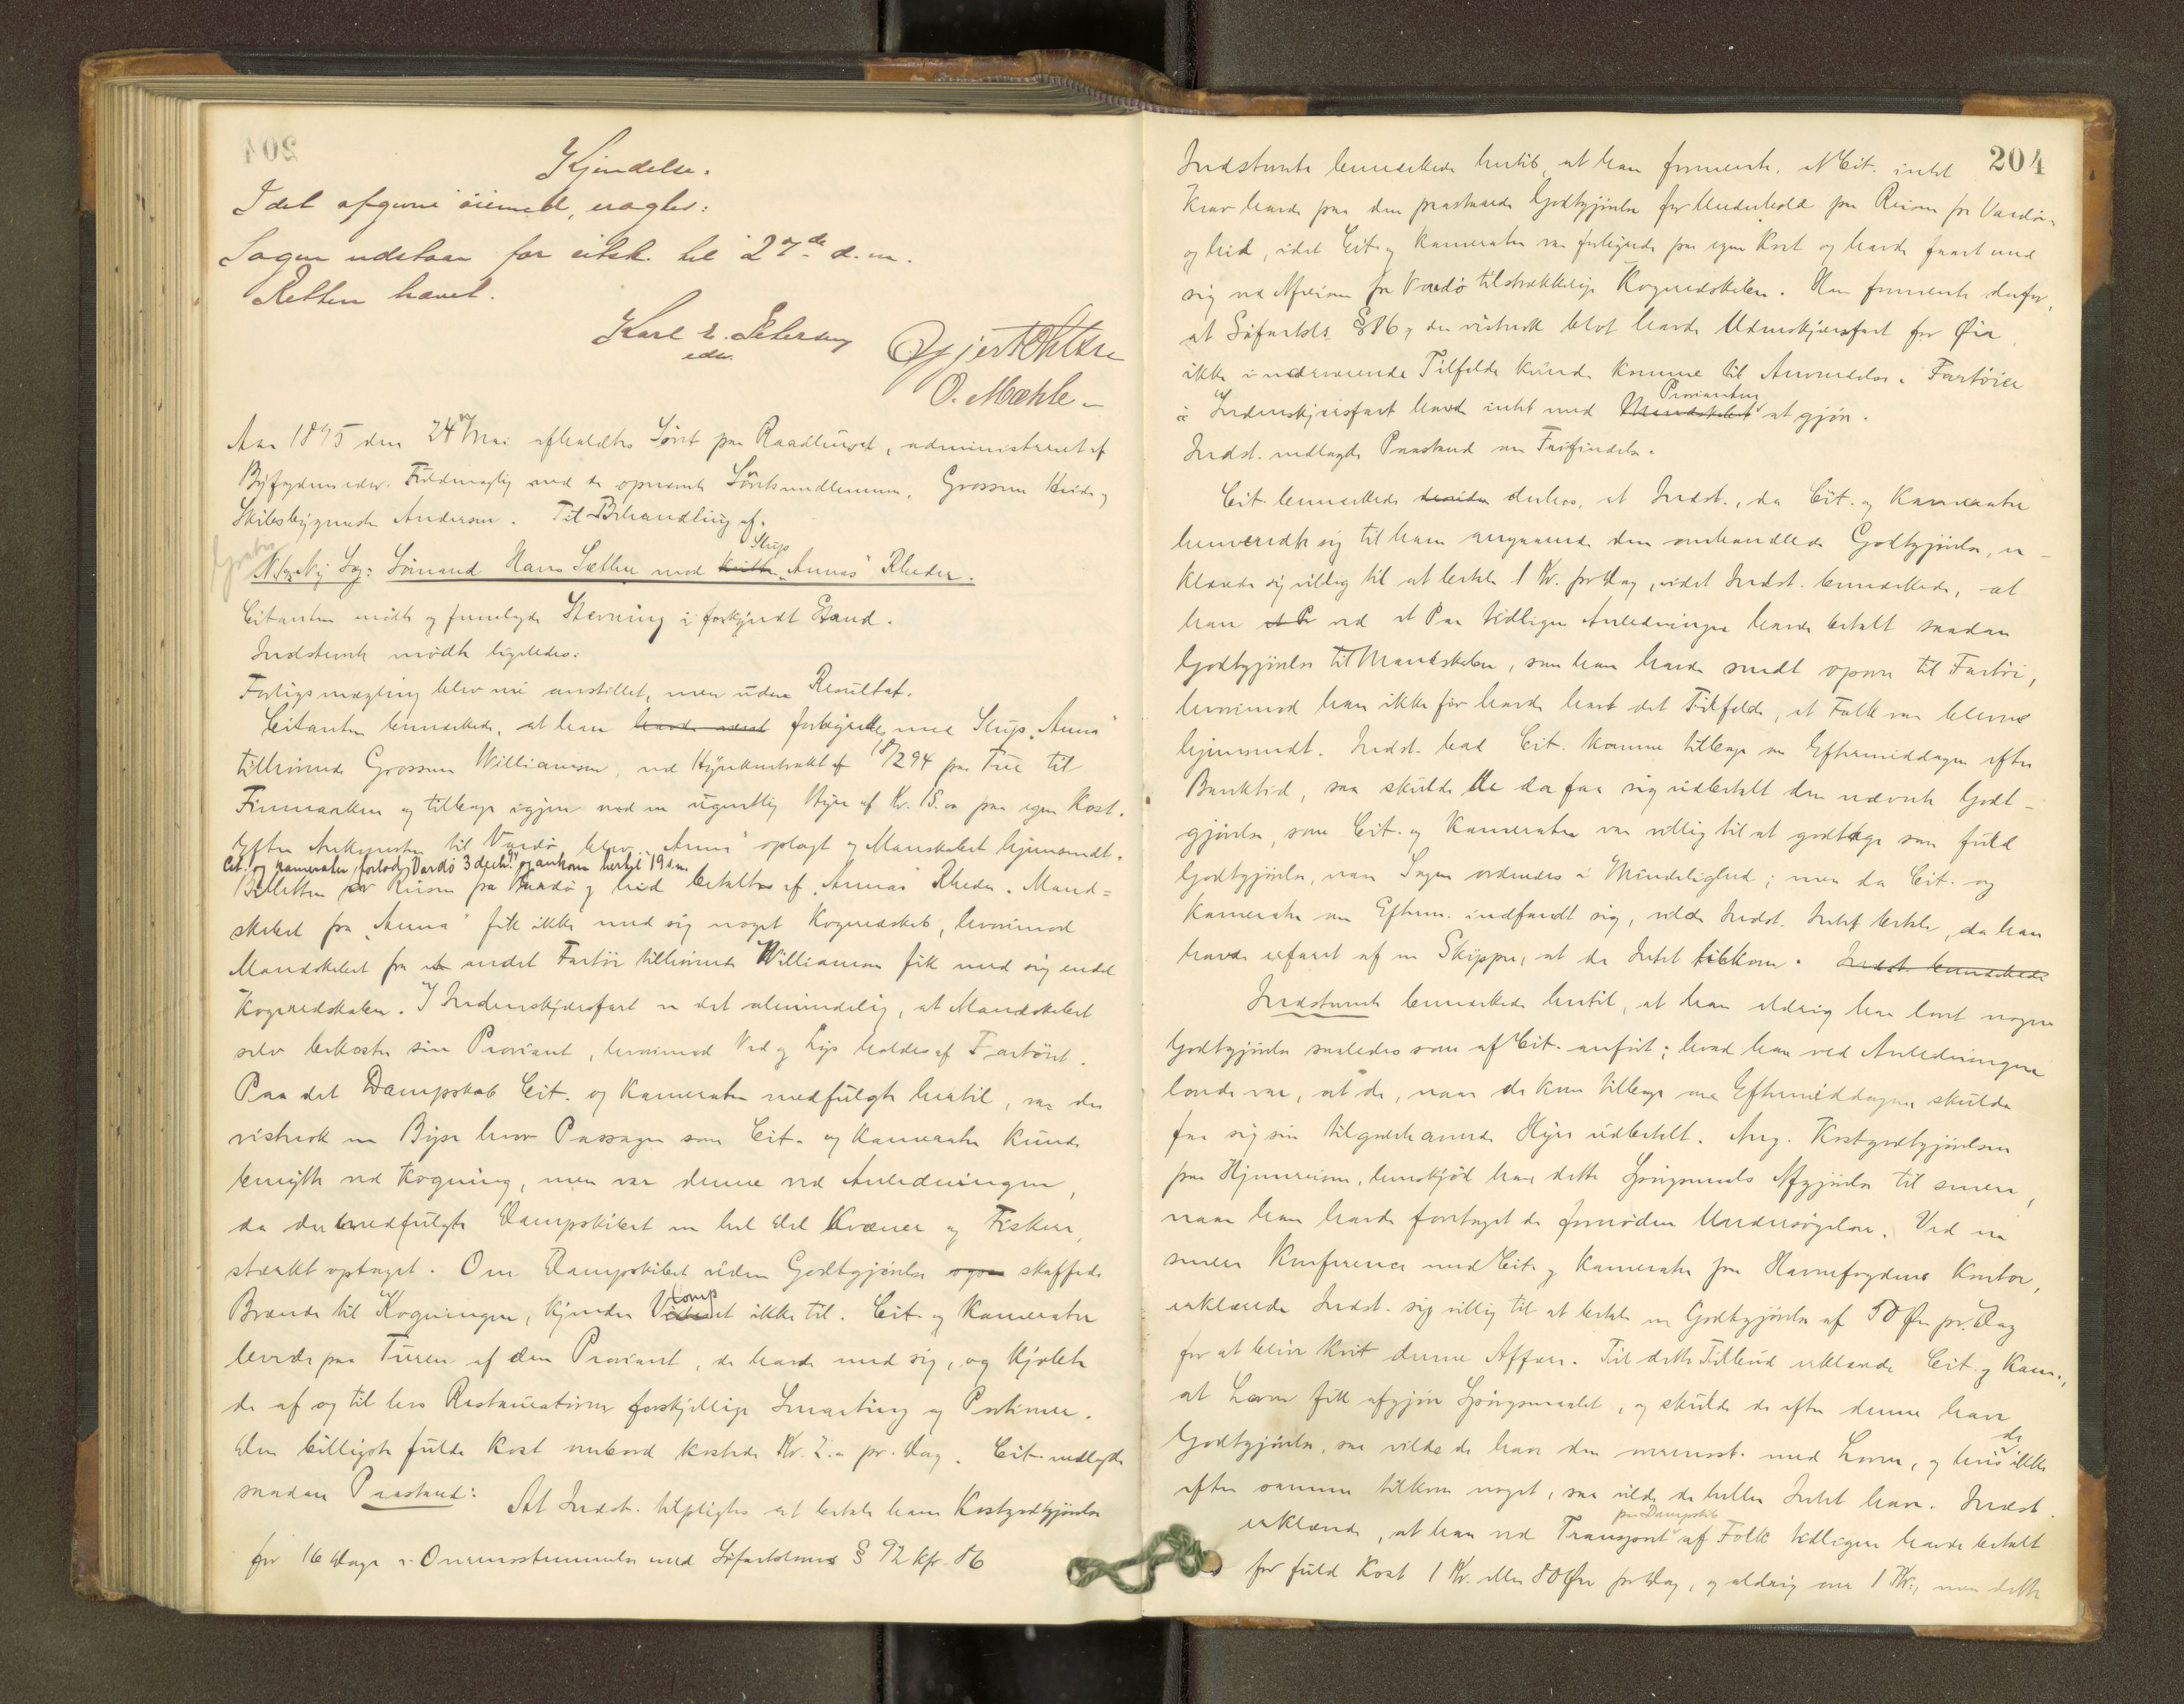 Kjendelse.
I det afgivne øiemed, eragtes:
Sagen udstaar for citsk. til 27de d.m.
Retten hævet.
Karl L. Petersen
edsv.
O. Mæhle
Aar 1895 den 24 Mai afholdtes Søret paa Raadhuset, administreret af
Byfogdens edsv. Fuldmægtig med de opnævnte Søretsmedlemmer, Grosserer og
Skibsbygmester Andersen. Til Behandling af:
Slup
Ny Sag: Sømand Hans Sæther mod "Annas" Rheder.
Citanten mødte og fremlagde Stevning i forkyndt Stand.
Indstevnte mødte ligeledes.
Forligsmægling blev nu anstillet, men uden Resultat.
Citanten bemærkede, at han havde været forhyret med Slup "Anna"
tilhørende Grosserer Williamsen, ved Hyrekontrakt af 18/2 94 paa Tur til
Finmarken og tilbage igjen med en ugentlig Hyre af Kr. 15.00 paa egen Kost.
Efter Ankomsten til Vardø blev "Anna" oplagt og Mandskabet hjemsendt.
Cit. og Kamerater forlod Vardø 3 decbr. og ankom hertil 19 s.m.
Billetten for Reisen fra Vardø og hid betaltes af "Annas" Rheder. Mand=
skabet fra "Anna" fik ikke med sig noget Kogeredskab, hvorimod
Mandskabet fra et andet Fartøi tilhørende Williamsen fik med sig endel
Kogeredskaber. I Indenskjærsfart er det almindelig, at Mandskabet
selv bekoster sin Proviant, hvorimod Ved og Lys holdes af Fartøiet.
Paa det Dampskib Cit. og Kamerater medfulgte hertil, var der
vistnok en Bysse hvor Passagerer som Cit. og Kamerater kunde
benytte ved Kogning, men var denne ved Anledningen,
da der medfulgte Dampskibet en hel Del Kvæner og Fiskere,
stærkt optaget. Om Dampskibet uden Godtgjørelse skaffede
Brænde til Kogningen, kjender Comp ikke til. Cit. og Kamerater
levede paa Turen af den Proviant, de havde med sig, og kjøbte
de af og til hos Restauratøren forskjellige Smaating og Portioner.
Den billigste fulde Kost ombord kostede Kr. 2.00 pr. Dag. Cit. nedlagde
saadan Paastand: At Indst. tilpligtes at betale ham Kostgodtgjørelse
for 16 Dage i Overensstemmelse med Søfartslovens § 92 kfr. 86
204
Indstevnte bemærkede hertil, at han formente, at Cit. intet
Krav havde paa den paastaaede Godtgjørelse for Underhold paa Reisen fra Vardø
og hid, idet Cit. og Kamerater var forhyrede paa egen Kost og havde faaet med
sig ved Afreisen fra Vardø tilstrækkelige Kogeredskaber. Han formente derfor,
at Søfartsls. § 86, der vistnok blot havde Udenskjærsfart for Øie
ikke i nærværende Tilfælde kunde komme til Anvendelse. Fartøier
i Indenskjærsfart havde intet med Provianten Mandskabet at gjøre.
Indst. nedlagde Paastand om Frifindelse.
Cit. bemærkede derhos, at Indst., da Cit. og Kamerater
henvendte sig til ham angaaende den omhandlede Godtgjørelse, er-
klærede sig villig til at betale 1 Kr. pr Dag, idet Indst. bemærkede, at
han ved et Par tidligere Anledninger havde betalt saadan
Godtgjørelse til Mandskaber, som han havde sendt opover til Fartøi,
hvorimod han ikke før havde havt det Tilfælde, at Folk var blevne
hjemsendt. Indst. bad Cit. komme tilbage om Eftermiddagen efter
Banktid, saa skulde de da faa sig udbetalt den nævnte Godt-
gjørelse, som Cit. og Kamerater var villig til at godtage som fuld
Godtgjørelse, naar Sagen ordnedes i Mindelighed; men da Cit. og
Kamerater om Efterm. indfandt sig, vilde Indst. Intet betale, da han
havde erfaret af en Skipper, at de Intet tilkom. Indst. bemærkede
Indstevnte bemærkede hertil, at han aldrig har lovet nogen
Godtgjørelse saaledes som af Cit. anført; hvad han ved Anledningen
lovede var, at de, naar de kom tilbage om Eftermiddagen skulde
faa sig sin tilgodehavende Hyre udbetalt. Ang. Kostgodtgjørelsen
paa Hjemreisen, henskjød han dette Spørgsmaals Afgjørelse til senere,
naar han havde foretaget de fornødne Undersøgelser. Ved en
senere Konference med Cit. og Kamerater paa Havnefogdens Kontor,
erklærede Indst. sig villig til at betale en Godtgjørelse af 50 Øre pr. Dag
for at blive kvit denne Affære. Til dette Tilbud erklærede Cit. og Kam.,
at Loven fik afgjøre Spørgsmaalet, og skulde de efter denne have
Godtgjørelse, saa vilde de have den overensst. med Loven, og hvis de ikke
efter samme tilkom noget, saa vilde de heller Intet have. Indst.
erklærede, at han ved Transport pr Dampskib af Folk tidligere havde betalt
for fuld Kost 1 Kr. eller 80 Øre pr Dag, og aldrig over 1 Kr., men dette